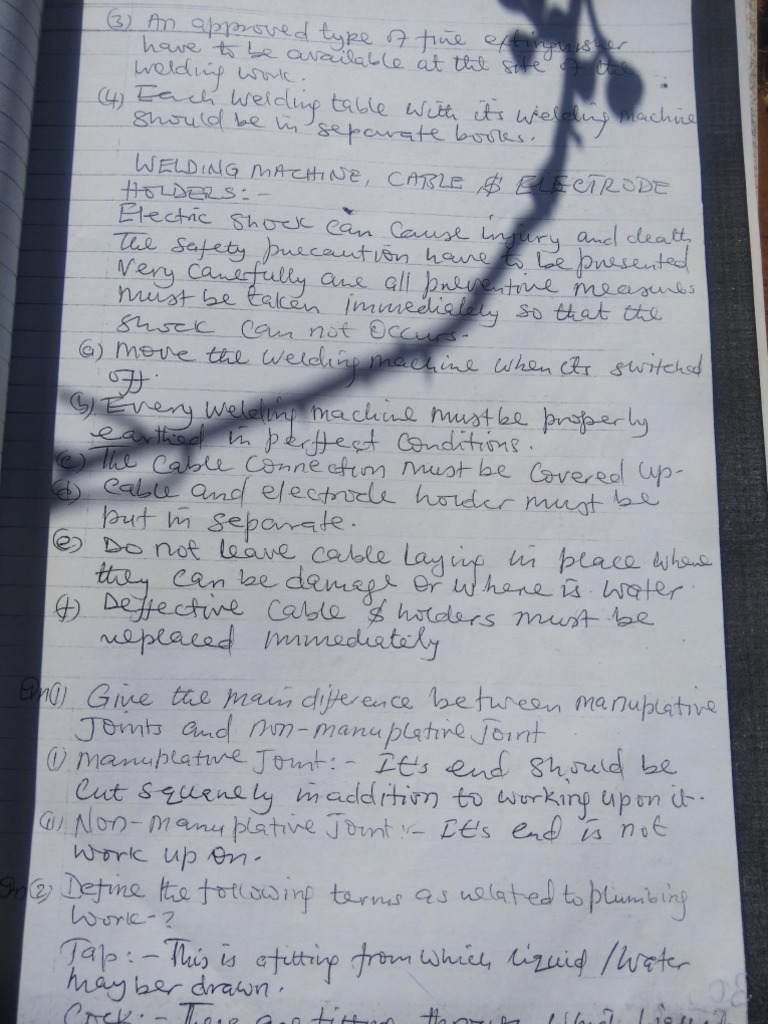 (3) An approved type of fire extinguisher
have to be available at the site of the
welding work.
(4) Each welding table with its welding machine
should be in separate books.
WELDING MACHINE, CABLE $ ELECTRODE
HOLDERS:-
Electric shock can cause injury and death
The safety precaution have to be presented
very carefully are all preventive measures
must be taken immediately so that the
shock can not occurs-
(a) Move the welding machine when its switched
off.
(b) Every welding machine must be properly
earthed in perffect conditions.
(c) The cable connection must be covered up-
(d) Cable and electrode horder must be
put in separate.
(e) Do not leave cable laying in place where
they can be damage or where is water.
(f) Deffective cable $ holders must be
replaced immediately
(1) Give the main difference between manuplative
Joints and non-manuplative joint
(i) Manuplative Joint:- It's end should be
cut squarely in addition to working upon it.
(ii) Non-manuplative Joint:- It's end is not
work up on.
(2) Define the following terms as related to plumbing
work-?
Tap:- This is a fitting from which liquid /water
may ber drawn.
Cock:-